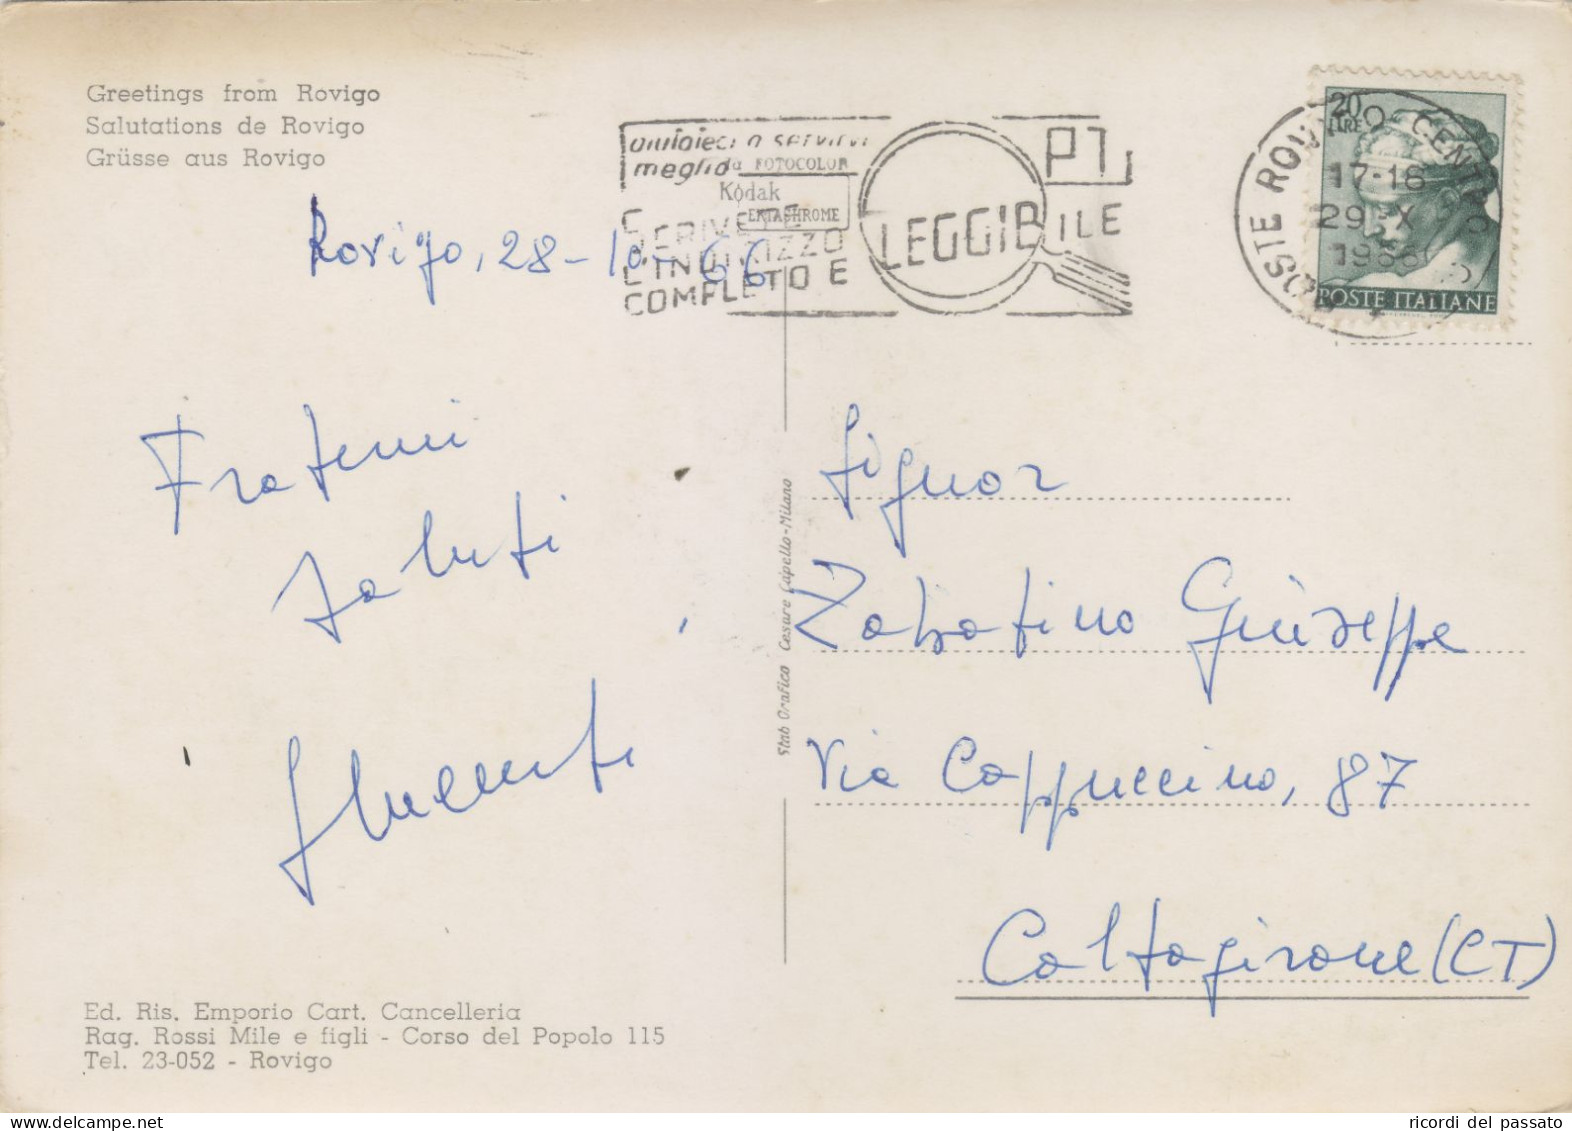 Greetings from Rovigo
Salutations de Rovigo
Grüsse aus Rovigo
Rovigo, 28-10-66
aiutateci a servirvi
meglio
da FOTOCOLOR
Kodak
EKTACHROME
SCRIVETE
L'INDIRIZZO
COMPLETO E
LEGGIBILE
PT
20
LIRE
POSTE ROVIGO CENTRO
17-18
29 X
1966
POSTE ITALIANE
Fraterni
saluti
Signor
Zabatino Giuseppe
Via Cappuccino, 87
Caltagirone (CT)
Stab Grafico Cesare Capello-Milano
Ed. Ris. Emporio Cart. Cancelleria
Rag. Rossi Mile e figli - Corso del Popolo 115
Tel. 23-052 - Rovigo
delcampe.net
ricordi del passato